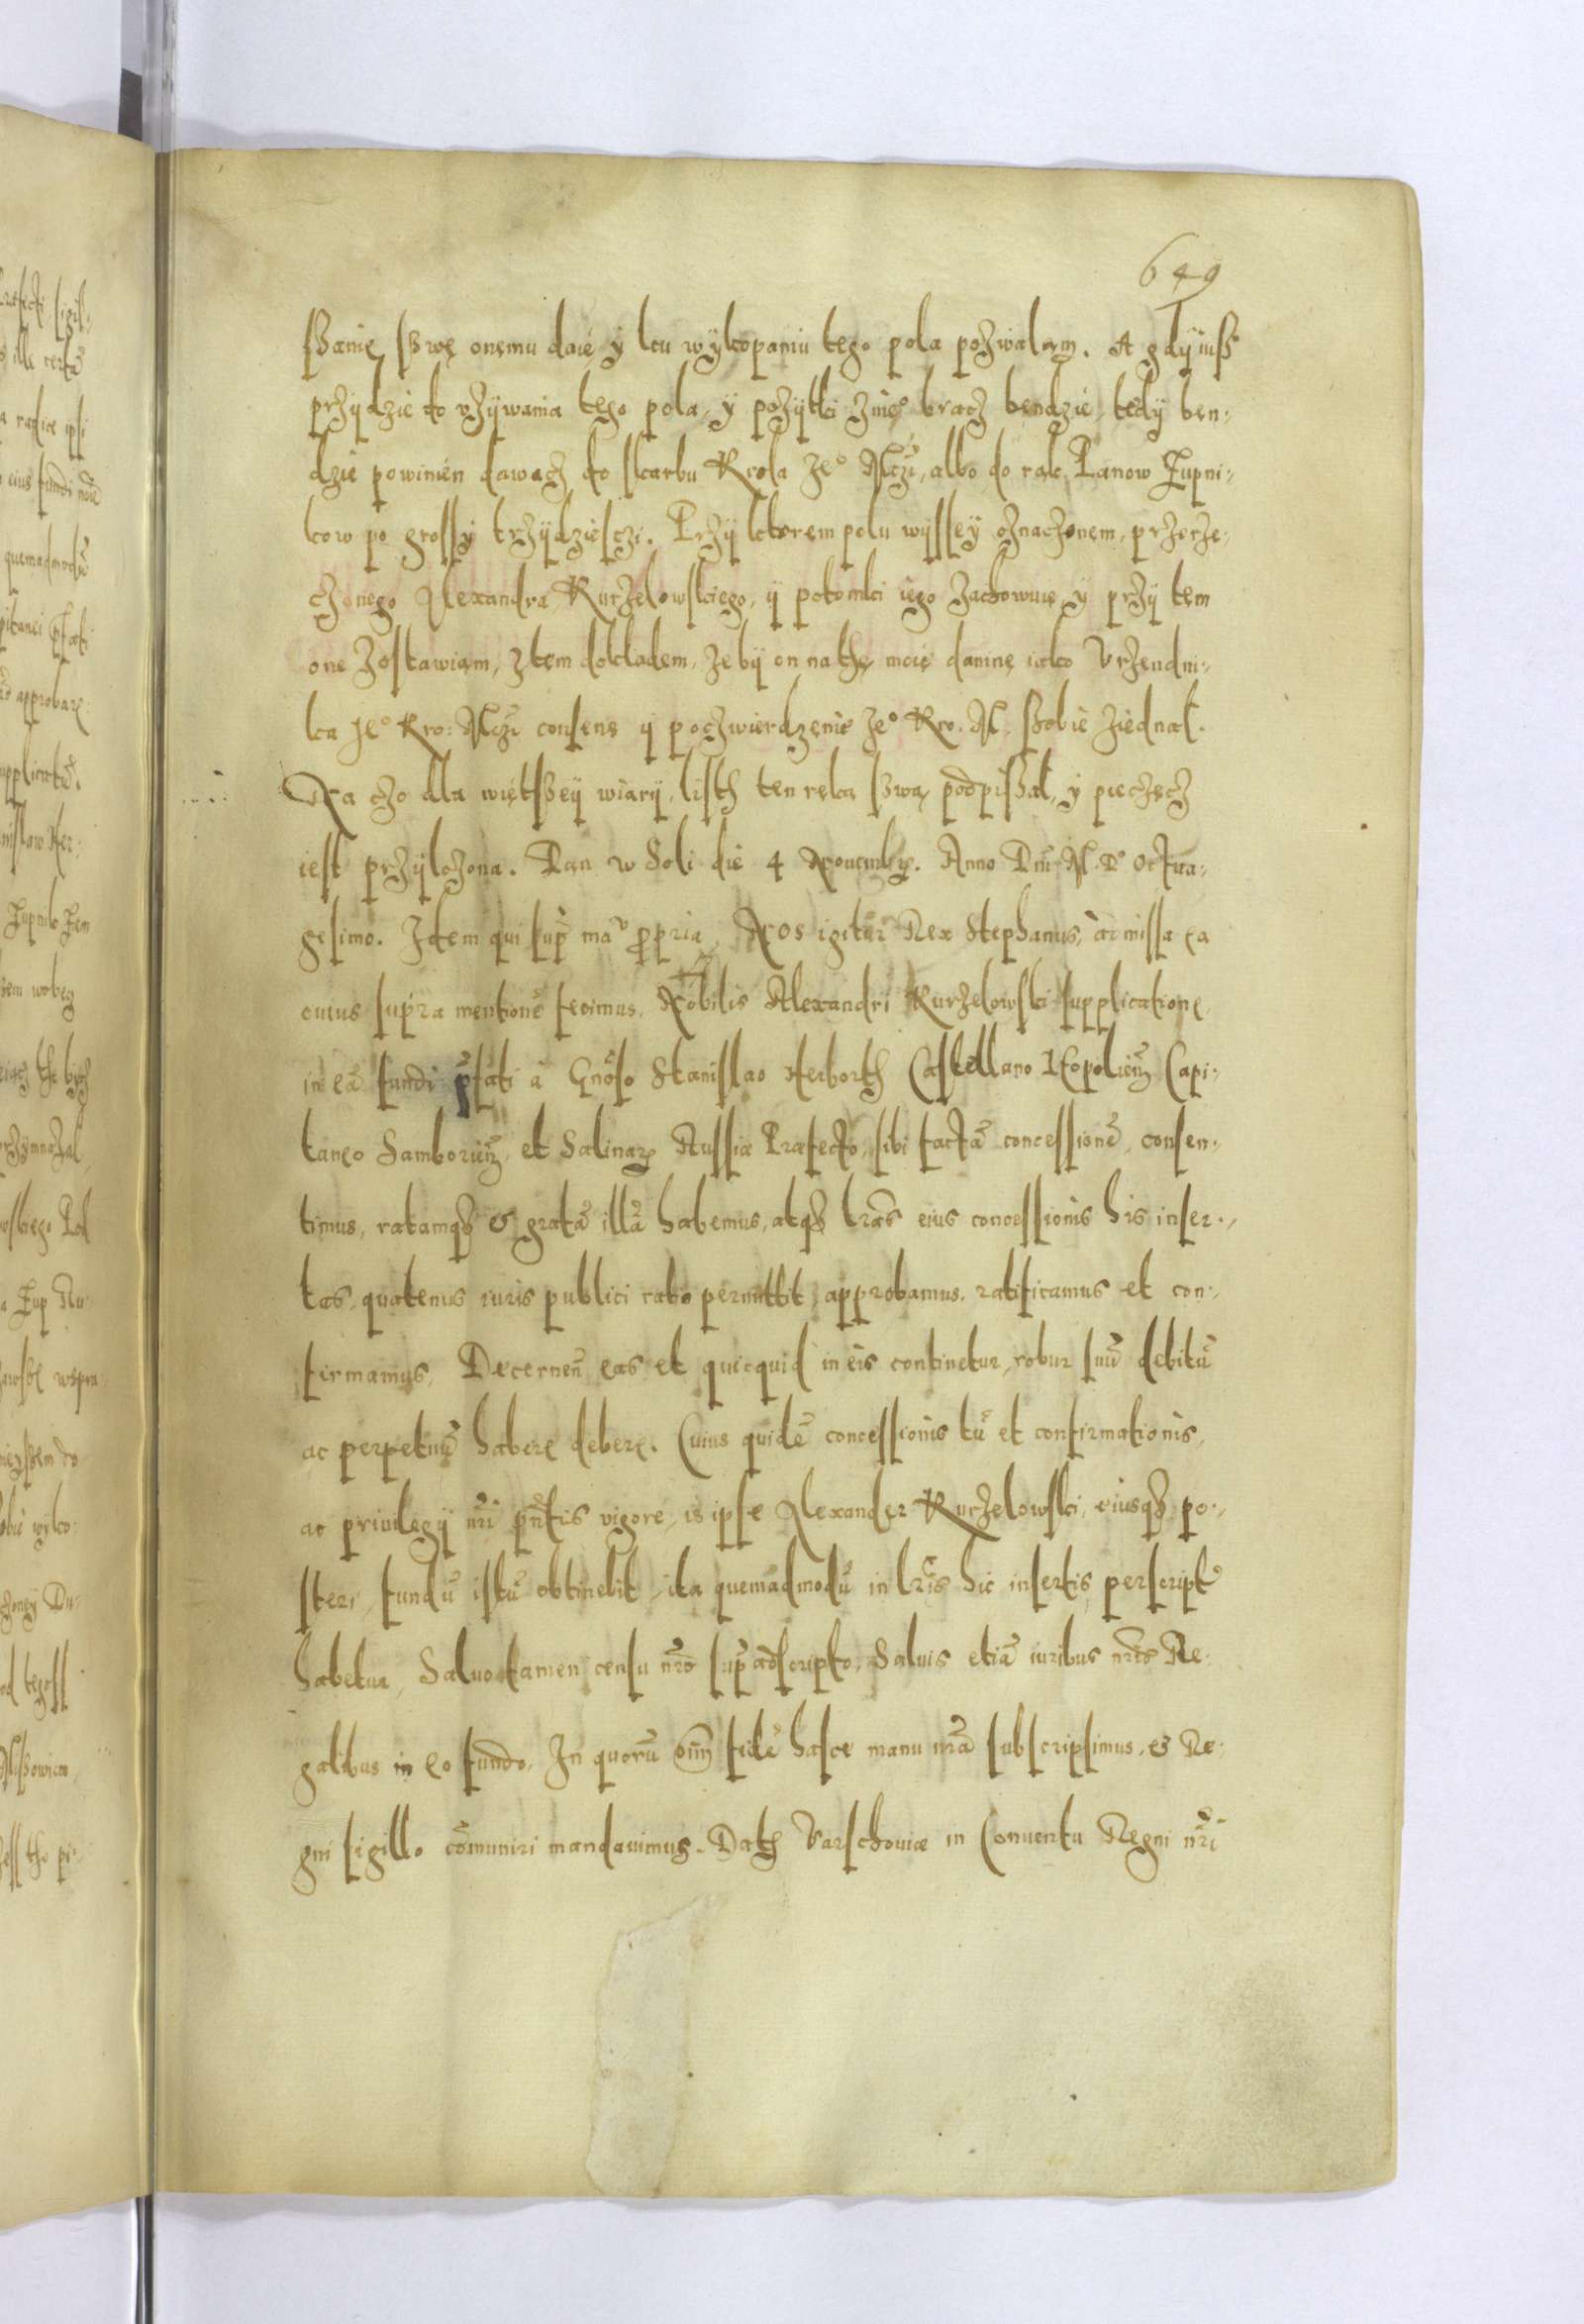 649
ssanię swę onemu daię y ku wykopaniu tego pola pozwalam. A gdy iuss
przydzie do vzywania tego pola, y pozytki znieo bracz bendzie, tedy ben-
dzie powinien dawacz do skarbu Krola Jeo Mczi, albo do rąk Panow Zupni-
kow po grossy trzydziesczi. Przy ktorem polu wyssey oznaczonem, przerze-
czonego Alexandra Kurzelowskiego, y potomki iego zachowuię y przy tem
one zostawiam, ztem dokladem, ze by on nathę moię daninę iako Vrzendni-
ka Jeo Kro: Mczi consens y poczwierdzenie Jeo Kro. M. ssobie ziednał.
Na czo dla więtssey wiary, listh ten ręką swą podpissał, y pieczęcz
iest przylozona. Dan w Soli die 4 Nouembr. Anno Dni M. Do Octua-
gesimo. Idem qui supra mau propria, Nos igitur Rex Stephanus, admissa ea
cuius supra mentionē fecimus, Nobilis Alexandri Kurzelowski supplicatione,
in eā fundi pfati à Gnoso Stanislao Herborth Castellano Leopolien Capi-
taneo Samborien, et Salinar Russiæ Præfecto, sibi factā concessionē, consen-
timus, ratamq & gratā illā habemus, atq lras eius concessionis his inser-
tas, quatenus iuris publici ratio permittit, approbamus, ratificamus et con-
firmamus, Decernen eas et quicquid in eis continetur, robur suū debitū
ac perpetuū habere debere. Cuius quidē concessionis tū et confirmationis,
ac priuilegij nri pntis vigore, is ipse Alexander Kurzelowski, eiusq po-
steri, fundū istū obtinebit, ita quemadmodū in lris hic insertis perscriptū
habetur, Saluo tamen censu nro supra adscripto, Saluis etiā iuribus nris Re-
galibus in eo fundo. In quorū oim fidē hasce manu nra subscripsimus, & Re-
gni sigillo cōmuniri mandauimus. Dat Varschouiæ in Conuentu Regni nri